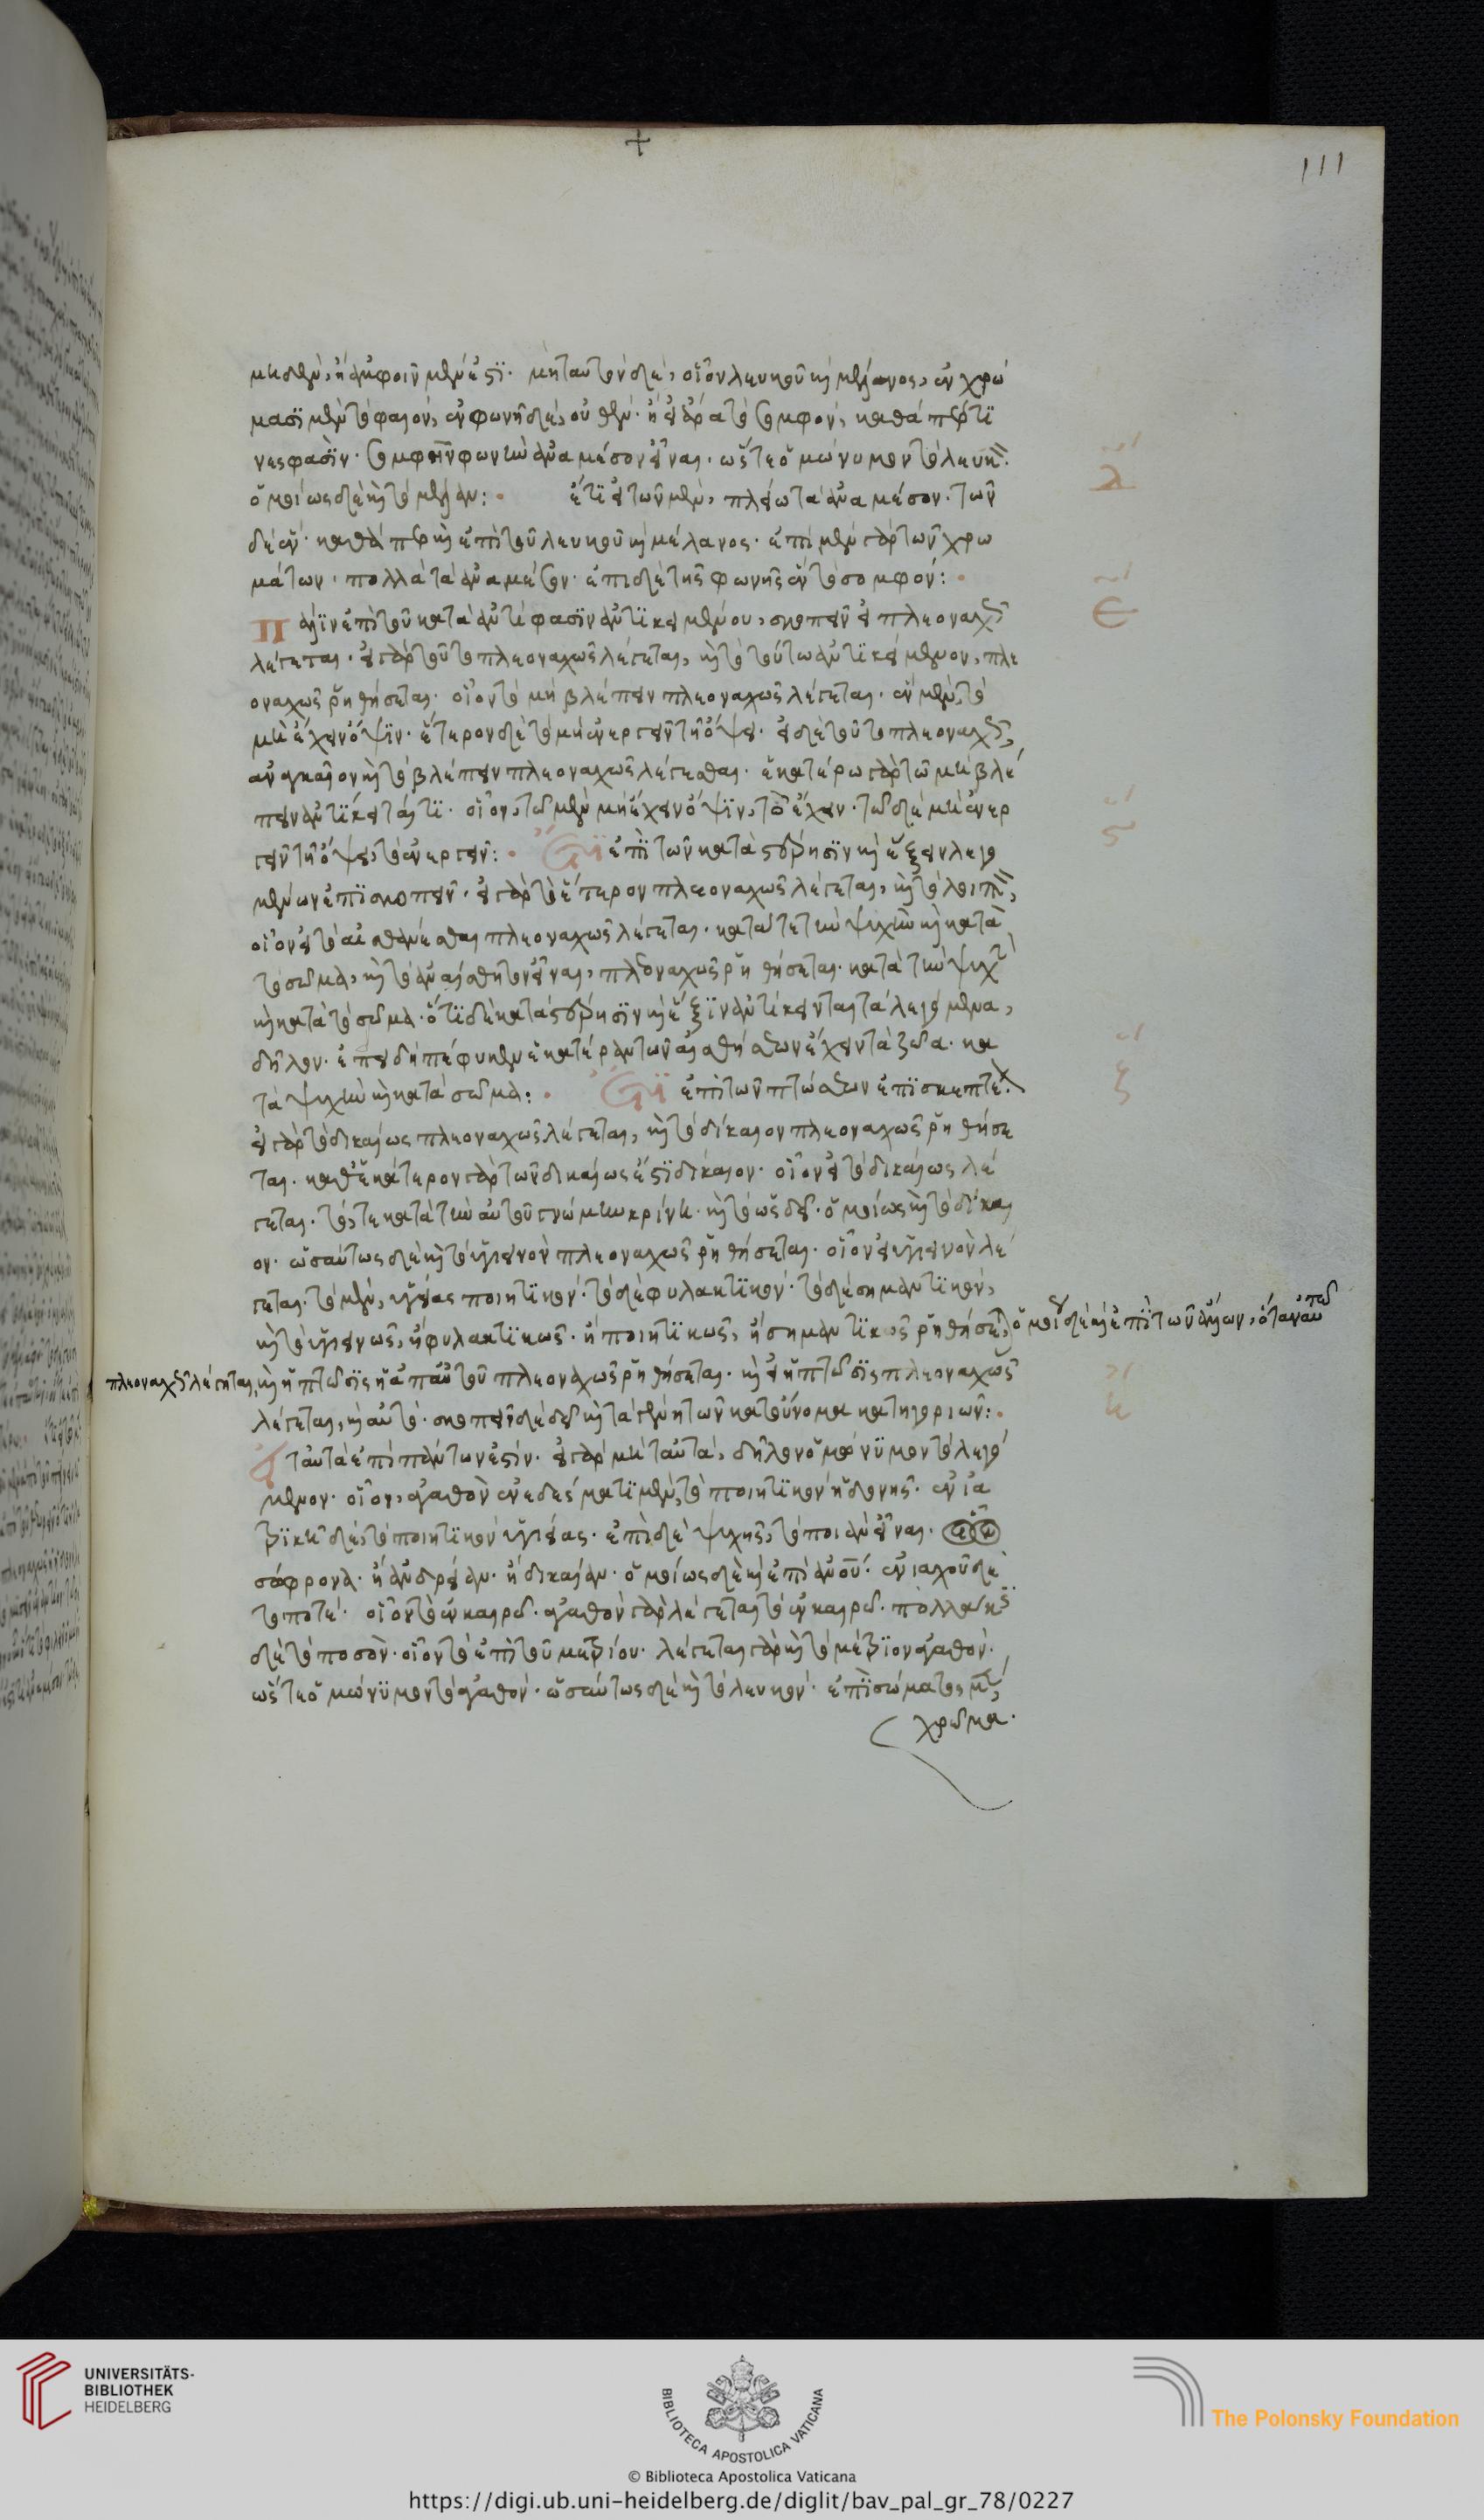 +
111
μηδὲν, ἢ ἀμφοῖν μὲν ἐστι. μὴ ταυτὸν δὲ, οἷον λευκοῦ καὶ μέλανος, ἐν χρώ
μασι μὲν τὸ φαιόν, ἐν φωνῇ δὲ, οὐθέν. ἢ εἰ ἄρα τὸ σομφόν, καθάπερ τι
νες φασὶν. σομφὴν φωνὴν ἀνα μέσον εἶναι. ὥστε ὁμώνυμον τὸ λευκὸν.
ὁμοίως δὲ καὶ τὸ μέλαν: ἔτι εἰ τῶν μὲν, πλείω τὰ ἀνα μέσον. τῶν
δὲ ἕν. καθάπερ καὶ ἐπὶ τοῦ λευκοῦ καὶ μέλανος. ἐπὶ μὲν γὰρ τῶν χρω
μάτων. πολλὰ τὰ ἀνα μέσον. ἐπι δὲ τῆς φωνῆς ἓν τὸ σομφόν:
Πάλιν ἐπὶ τοῦ κατα ἀντίφασιν ἀντικειμένου, σκοπεῖν εἰ πλεοναχῶς
λέγεται. εἰ γὰρ τοῦτο πλεοναχῶς λέγεται, καὶ τὸ τούτω ἀντικείμενον, πλε
οναχῶς ῥηθήσεται. οἷον τὸ μὴ βλέπειν πλεοναχῶς λέγεται. ἓν μὲν, τὸ
μὴ ἔχειν ὄψιν. ἕτερον δὲ τὸ μὴ ἐνεργεῖν τῇ ὄψει. εἰ δὲ τοῦτο πλεοναχῶς,
αναγκαῖον καὶ τὸ βλέπειν πλεοναχῶς λέγεσθαι. ἑκατέρω γὰρ τῶ μὴ βλέ
πειν ἀντίκειταί τι. οἷον, τῶ μὲν μὴ ἔχειν ὄψιν, τὸ ἔχειν. τῶ δὲ μὴ ἐνερ
γεῖν τῇ ὄψει, τὸ ἐνεργεῖν: Ἔτι ἐπὶ τῶν κατὰ στέρησιν καὶ ἕξιν λεγο
μένων ἐπισκοπεῖν. εἰ γὰρ τὸ ἕτερον πλεοναχῶς λέγεται, καὶ τὸ λοιπόν,
οἷον εἰ τὸ αἰσθάνεσθαι πλεοναχῶς λέγεται. κατά τε τὴν ψυχὴν καὶ κατὰ
τὸ σῶμα, καὶ τὸ ἀναίσθητον εἶναι, πλεοναχῶς ῥηθήσεται. κατὰ τὴν ψυχὴν
καὶ κατὰ τὸ σῶμα. ὅτι δὲ κατὰ στέρησιν καὶ ἕξιν ἀντίκειται τὰ λεγόμενα,
δῆλον. ἐπειδὴ πέφυκεν ἑκατέραν τῶν αἰσθήσεων ἔχειν τὰ ζῶα. κα
τὰ ψυχὴν καὶ κατὰ σῶμα: Ἔτι ἐπὶ τῶν πτώσεων ἐπισκεπτέον.
εἰ γὰρ τὸ δικαίως πλεοναχῶς λέγεται, καὶ τὸ δίκαιον πλεοναχῶς ῥηθήσε
ται. καθ' ἑκάτερον γὰρ τῶν δικαίως ἔστι δίκαιον. οἷον εἰ τὸ δικαίως λέ
γεται. τό, τε κατὰ τὴν αὐτοῦ γνώμην κρίνειν. καὶ τὸ ὡς δεῖ. ὁμοίως καὶ τὸ δίκαι
ον. ὡσαύτως δὲ καὶ τὸ ὑγιεινὸν πλεοναχῶς ῥηθήσεται. οἷον εἰ ὑγιεινὸν λέ
γεται. τὸ μὲν, ὑγείας ποιητικόν. τὸ δὲ φυλακτικόν. τὸ δὲ σημαντικόν,
καὶ τὸ ὑγιεινῶς, ἢ φυλακτικῶς. ἢ ποιητικῶς, ἢ σημαντικῶς ῥηθήσεται, ὁμοίως δὲ καὶ ἐπὶ τῶν ἄλλων, ὅταν αὐτὸ
πλεοναχῶς λέγεται, καὶ ἡ πτῶσις ἡ ἀπ' αὐτοῦ πλεοναχῶς ῥηθήσεται. καὶ εἰ ἡ πτῶσις πλεοναχῶς
λέγεται, καὶ αὐτό. σκοπεῖν δὲ δεῖ καὶ τὰ γένη τῶν κατ' οὔνομα κατηγοριῶν:
Εἰ ταὐτὰ ἐπὶ πάντων ἐστίν. εἰ γὰρ μὴ ταὐτὰ, δῆλον ὁμώνυμον τὸ λεγό
μενον. οἷον, ἀγαθὸν ἐν ἐδέσματι μὲν, τὸ ποιητικὸν ἡδονῆς. ἐν ἰα
τρικῆ δὲ, τὸ ποιητικὸν ὑγείας. ἐπὶ δὲ ψυχῆς, τὸ ποιὰν εἶναι.
σώφρονα. ἢ ἀνδρείαν. ἢ δικαίαν. ὁμοίως δὲ καὶ ἐπὶ ἀνοῦ. ἐνιαχοῦ δὲ
τὸ ποτέ. οἷον τὸ ἐν καιρῶ. ἀγαθὸν γὰρ λέγεται τὸ ἐν καιρῶ. πολλάκις
δὲ τὸ ποσὸν. οἷον τὸ ἐπὶ τοῦ μετρίου. λέγεται γὰρ καὶ τὸ μέτριον ἀγαθὸν.
ὥστε ὁμώνυμον τὸ ἀγαθόν. ὡσαύτως δὲ καὶ τὸ λευκὸν. ἐπὶ σώματος μὲν,
χρῶμα.
UNIVERSITÄTS-
BIBLIOTHEK
HEIDELBERG
BIBLIOTECA APOSTOLICA VATICANA
The Polonsky Foundation
© Biblioteca Apostolica Vaticana
https://digi.ub.uni-heidelberg.de/diglit/bav_pal_gr_78/0227